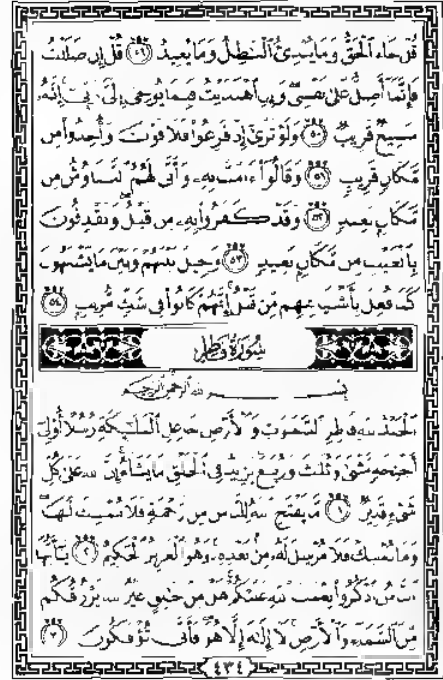 قُلْ جَاءَ الْحَقُّ وَمَا يُبْدِئُ الْبَاطِلُ وَمَا يُعِيدُ ٤٩ قُلْ إِن ضَلَلْتُ
فَإِنَّمَا أَضِلُّ عَلَى نَفْسِي وَإِنِ اهْتَدَيْتُ فَبِمَا يُوحِي إِلَيَّ رَبِّي إِنَّهُ
سَمِيعٌ قَرِيبٌ ٥٠ وَلَوْ تَرَى إِذْ فَزِعُوا فَلَا فَوْتَ وَأُخِذُوا مِن
مَّكَانٍ قَرِيبٍ ٥١ وَقَالُوا آمَنَّا بِهِ وَأَنَّى لَهُمُ التَّنَاوُشُ مِن
مَّكَانٍ بَعِيدٍ ٥٢ وَقَدْ كَفَرُوا بِهِ مِن قَبْلُ وَيَقْذِفُونَ
بِالْغَيْبِ مِن مَّكَانٍ بَعِيدٍ ٥٣ وَحِيلَ بَيْنَهُمْ وَبَيْنَ مَا يَشْتَهُونَ
كَمَا فُعِلَ بِأَشْيَاعِهِم مِّن قَبْلُ إِنَّهُمْ كَانُوا فِي شَكٍّ مُّرِيبٍ ٥٤
سُورَةُ فَاطِرٍ
بِسْمِ اللَّهِ الرَّحْمَنِ الرَّحِيمِ
الْحَمْدُ لِلَّهِ فَاطِرِ السَّمَاوَاتِ وَالْأَرْضِ جَاعِلِ الْمَلَائِكَةِ رُسُلًا أُولِي
أَجْنِحَةٍ مَّثْنَى وَثُلَاثَ وَرُبَاعَ يَزِيدُ فِي الْخَلْقِ مَا يَشَاءُ إِنَّ اللَّهَ عَلَى كُلِّ
شَيْءٍ قَدِيرٌ ١ مَّا يَفْتَحِ اللَّهُ لِلنَّاسِ مِن رَّحْمَةٍ فَلَا مُمْسِكَ لَهَا
وَمَا يُمْسِكْ فَلَا مُرْسِلَ لَهُ مِن بَعْدِهِ وَهُوَ الْعَزِيزُ الْحَكِيمُ ٢ يَا أَيُّهَا
النَّاسُ اذْكُرُوا نِعْمَتَ اللَّهِ عَلَيْكُمْ هَلْ مِنْ خَالِقٍ غَيْرُ اللَّهِ يَرْزُقُكُم
مِّنَ السَّمَاءِ وَالْأَرْضِ لَا إِلَهَ إِلَّا هُوَ فَأَنَّى تُؤْفَكُونَ ٣
٤٣٤